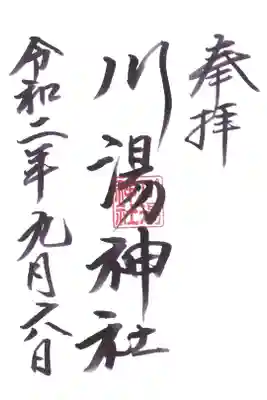 奉拝
川湯神社
令和二年九月六日